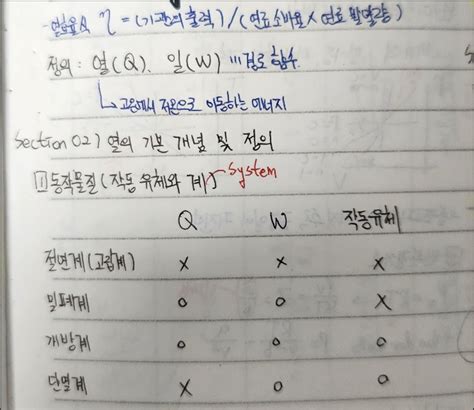 -열효율 η = (기관의 출력) / (연료소비율 × 연료 발열량)
정의 : 열(Q). 일(W) ''' 경로 함수
↳ 고온에서 저온으로 이동하는 에너지
Section 02) 열의 기본 개념 및 정의
① 동작물질 (작동 유체와 계) → System
Q W 작동유체
절연계(고립계) × × ×
밀폐계 o o ×
개방계 o o o
단열계 × o o